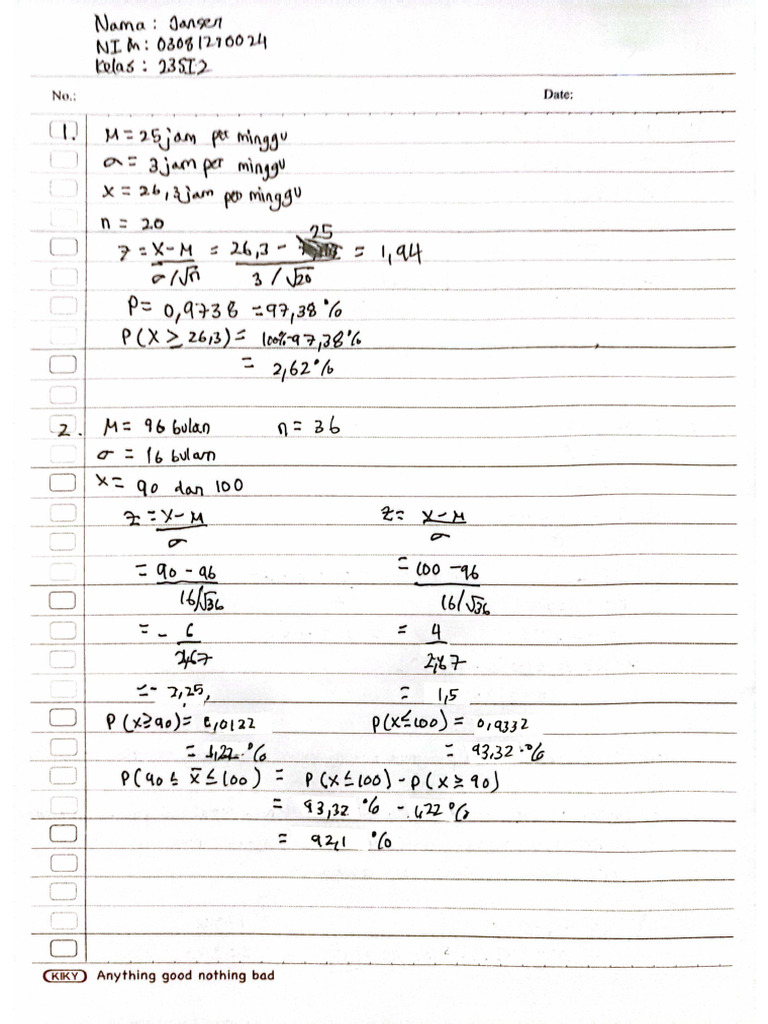 Nama : Jansen
NIM : 03081210024
Kelas : 23SI2
No.: Date:
1. M = 25 jam per minggu
σ = 3 jam per minggu
X = 26,3 jam per minggu
n = 20
25
Z = X-M = 26,3 - = 1,94
σ/√n 3/√20
P = 0,9738 = 97,38%
P(X ≥ 26,3) = 100%-97,38%
= 2,62%
2. M = 96 bulan n = 36
σ = 16 bulan
X = 90 dan 100
Z = X-M Z = X-M
σ σ
= 90 - 96 = 100 - 96
16/√36 16/√36
= - 6 = 4
2,67 2,67
= - 2,25, = 1,5
P(X≥90) = 0,0122 P(X≤100) = 0,9332
= 1,22% = 93,32%
P(90 ≤ X̄ ≤ 100) = P(X≤100) - P(X≥90)
= 93,32% - 1,22%
= 92,1 %
KIKY Anything good nothing bad